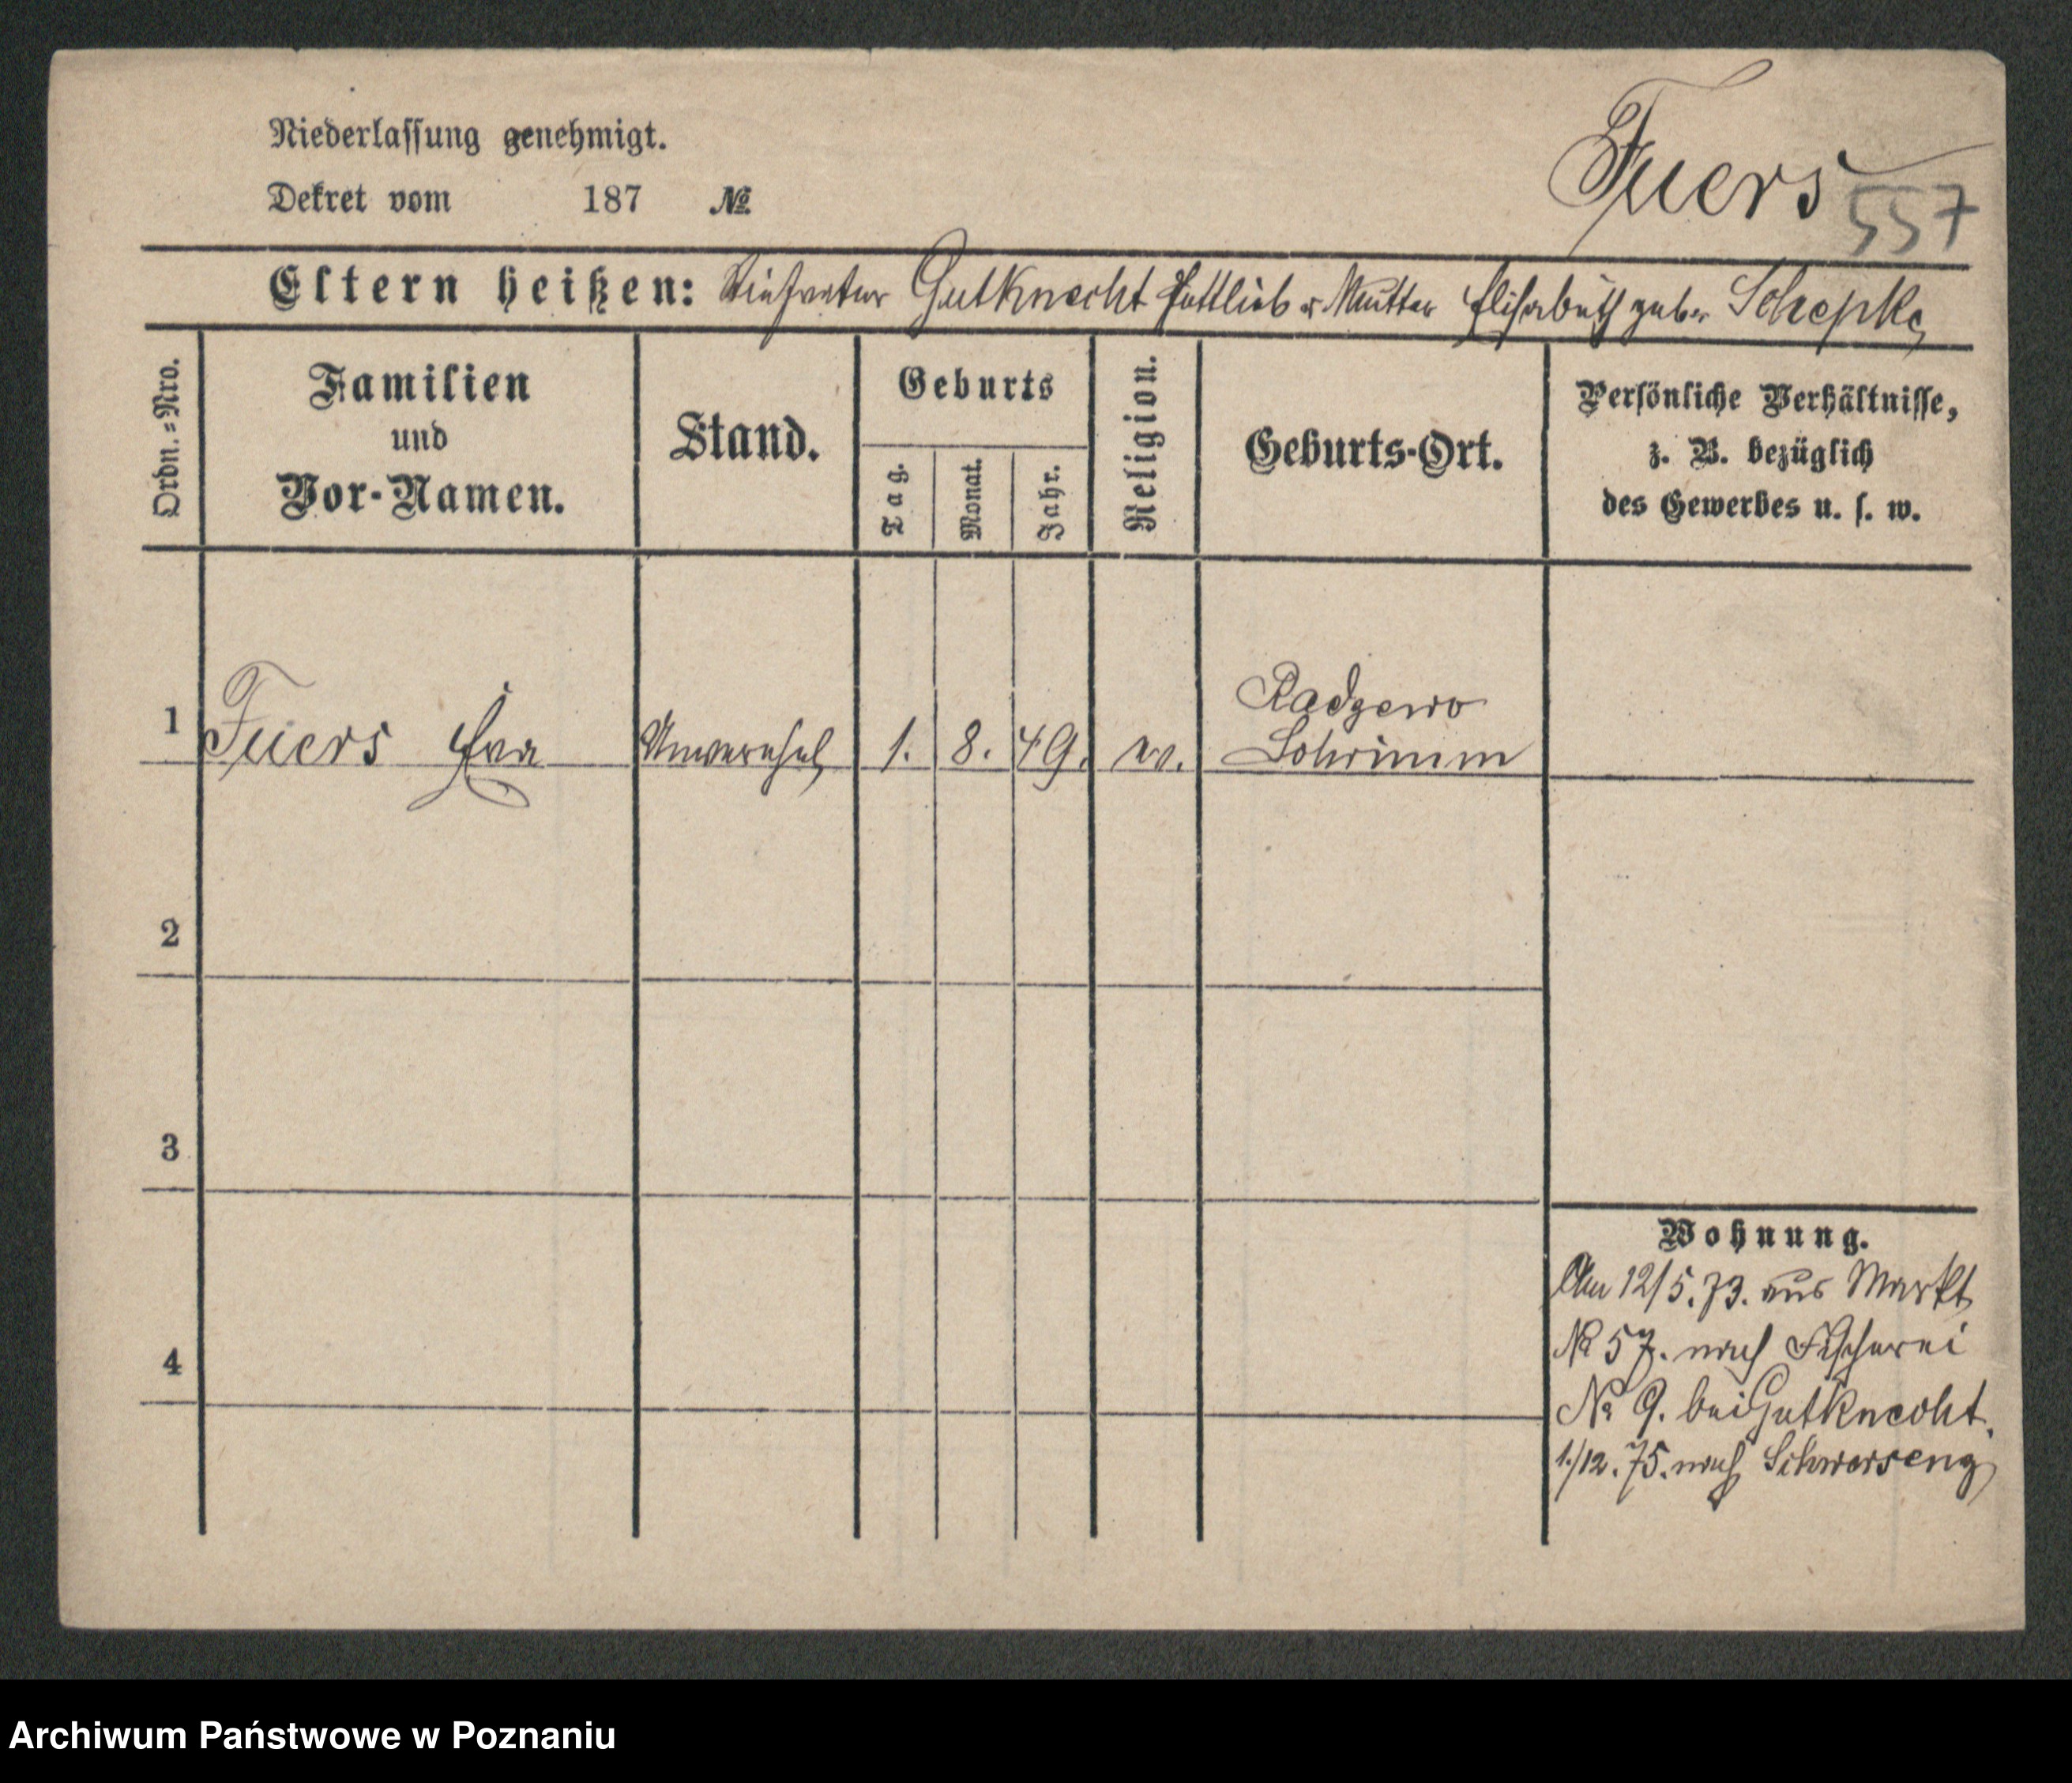 Niederlassung genehmigt.
Dekret vom 187 №
Fuers
557
Eltern heißen: Stiefvater Gutknecht Gottlieb u Mutter Elisabeth geb. Schepke
Ordn.-Nro.
Familien
und
Vor-Namen.
Stand.
Geburts
Tag.
Monat.
Jahr.
Religion.
Geburts-Ort.
Persönliche Verhältnisse,
z. B. bezüglich
des Gewerbes u. s. w.
Radzewo
1 Fuers Eva Unverehel 1. 8. 49. ev. Schrimm
2
3
4
Wohnung.
Am 12/5.73. aus Markt
№ 57. nach Fischerei
№ 9. bei Gutknecht.
1/12.75. nach Schwersenz
Archiwum Państwowe w Poznaniu